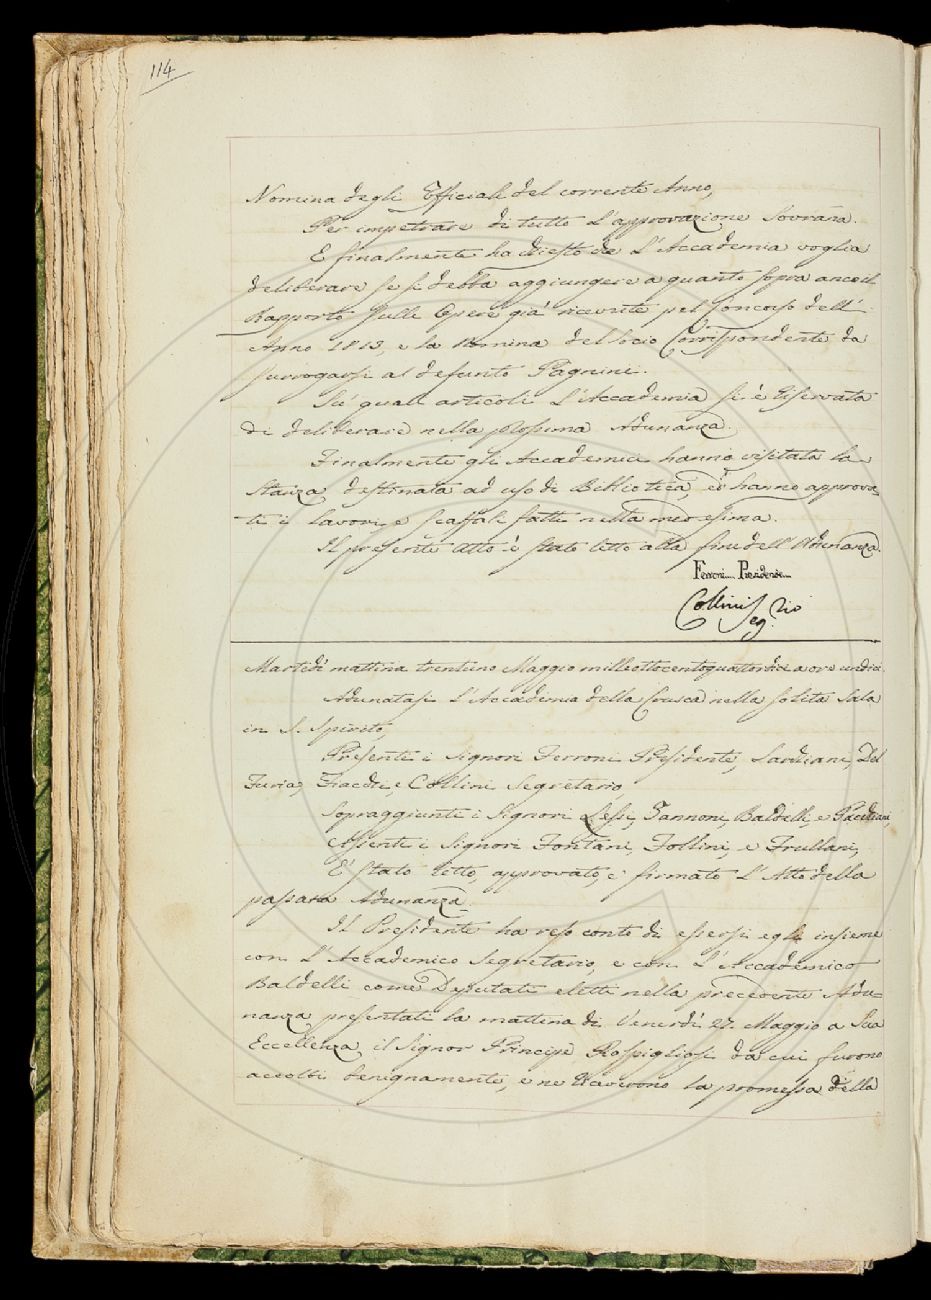 114
Nomina degli Efficiali del corrente Anno,
Per impetrare di tutto l'approvazione Sovrana.
E finalmente ha chiesto che L'Accademia voglia
deliberare se si debba aggiungere a quanto sopra anco il
Rapporto sulle Opere già ricevute pel Concorso dell'
Anno 1813, e la Nomina del Socio Corrispondente da
surrogarsi al defunto Pagnini.
Su' quali articoli L'Accademia si è riservata
di deliberare nella prossima Adunanza.
Finalmente gli Accademici hanno visitata la
Stanza destinata ad uso di Biblioteca, ed hanno approva-
ti i lavori, e scaffali fatti nella medesima.
Il presente Atto è stato letto alla fine dell'Adunanza.
Ferroni Presidente
Collini Seg.rio
Martedì mattina trentuno Maggio milleottocentoquattordici a ore undici
Adunatasi L'Accademia della Crusca nella solita Sala
in S. Spirito,
Presenti i Signori Ferroni Presidente, Sarchiani, Del
Furia, Fiacchi, e Collini Segretario,
Sopraggiunti i Signori Lessi, Zannoni, Baldelli, e
Assenti i Signori Fontani, Follini, e Frullani,
E' stato letto, approvato, e firmato L'Atto della
passata Adunanza.
Il Presidente ha reso conto di essersi egli insieme
con L'Accademico Segretario, e con L'Accademico
Baldelli come Deputati eletti nella precedente Adu=
nanza presentati la mattina di Venerdì 27. Maggio a Sua
Eccellenza il Signor Principe Rospigliosi da cui furono
accolti benignamente, e ne riceverono la promessa della